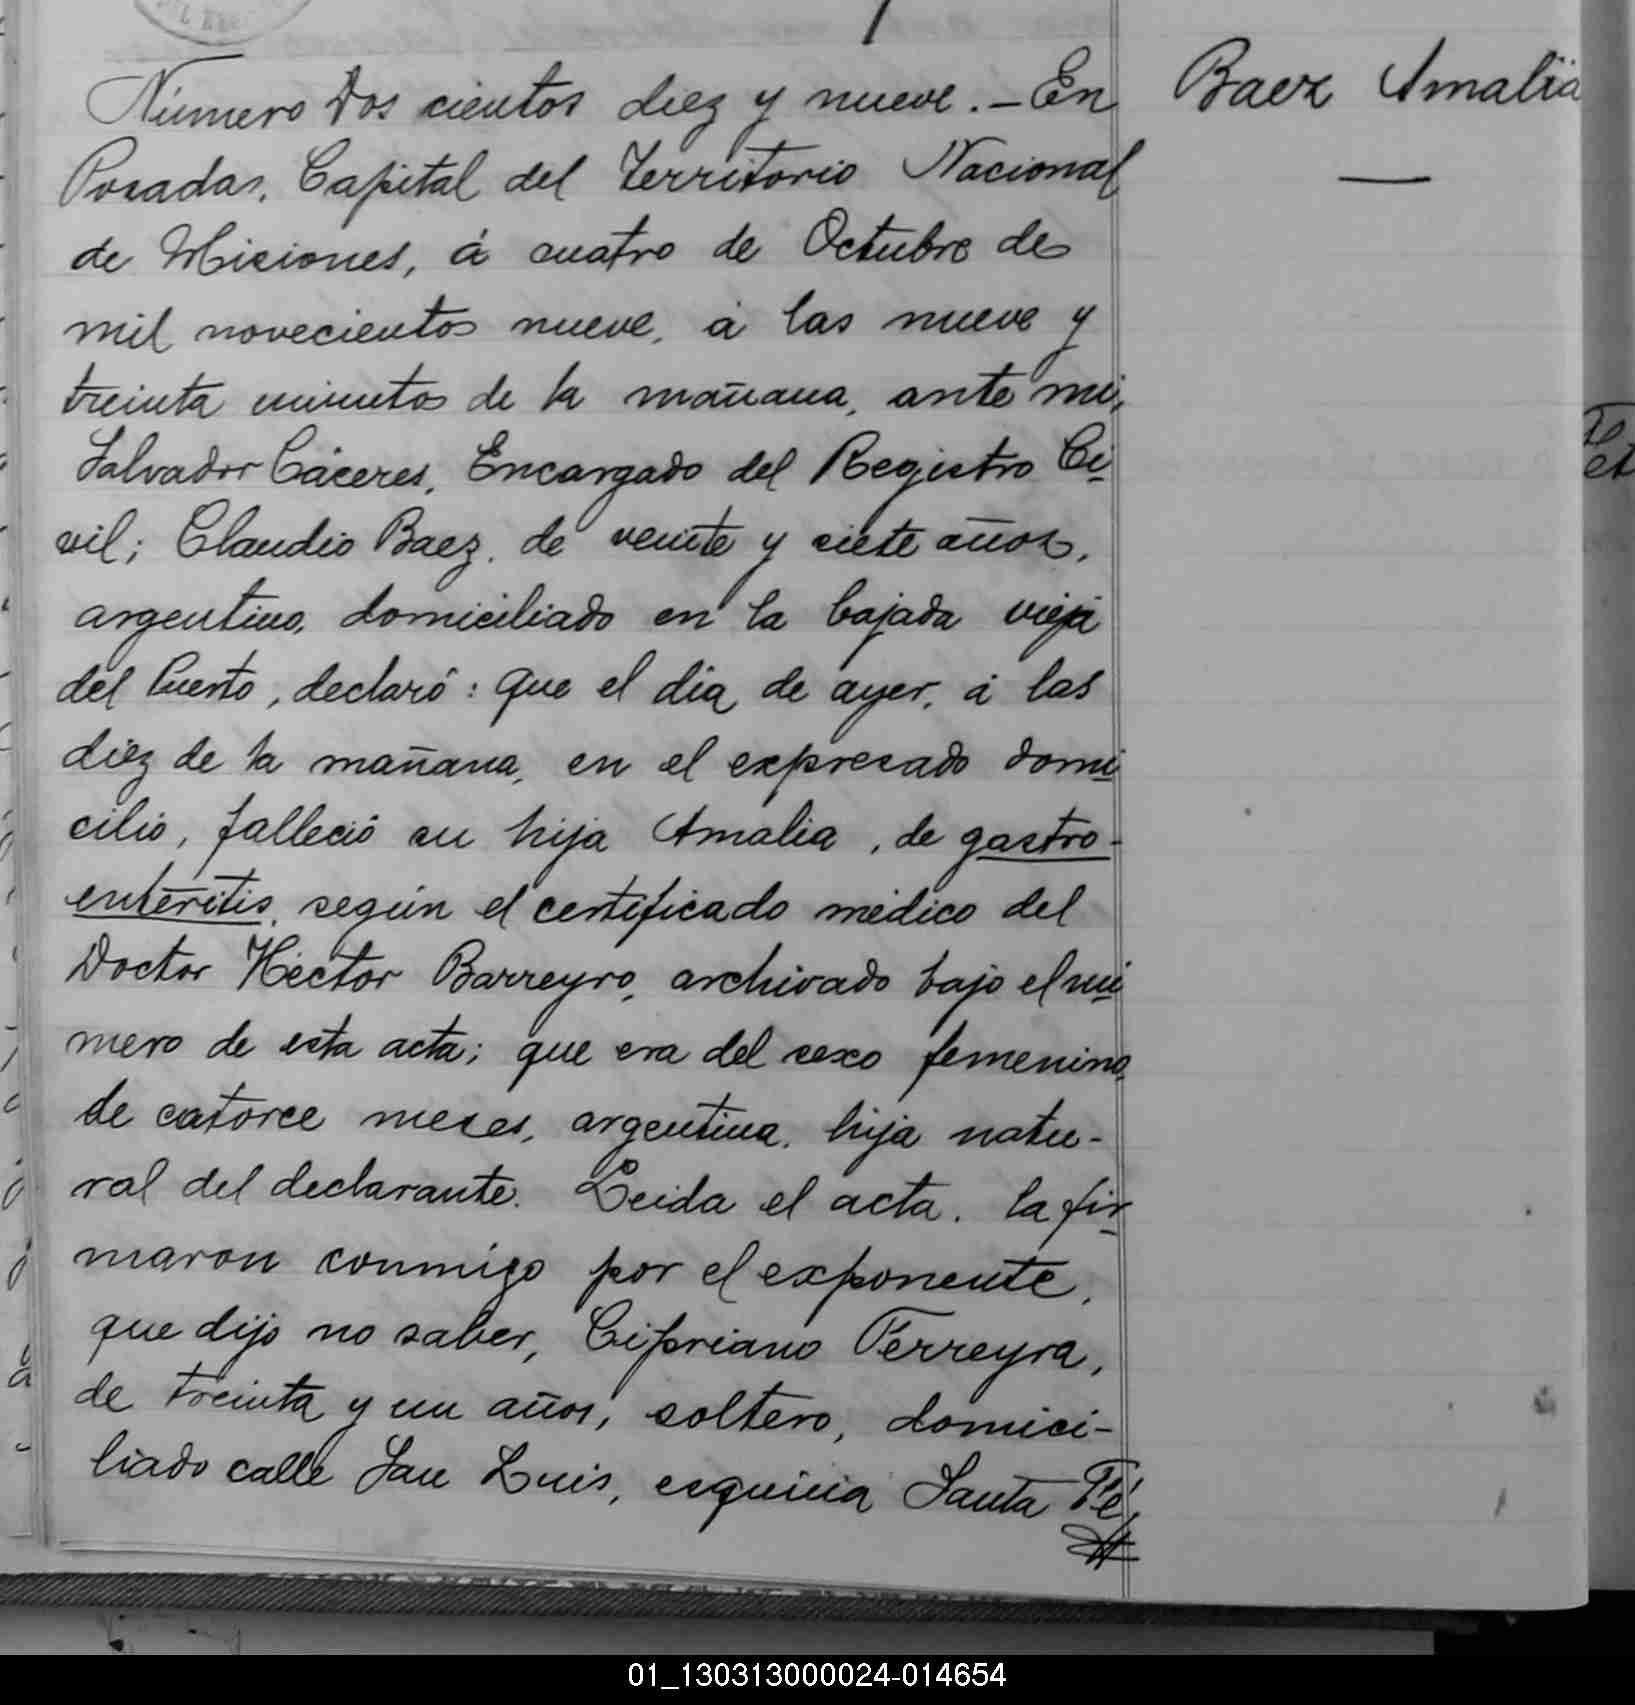 Número Dos cientos diez y nueve. – En
Posadas, Capital del Territorio Nacional
de Misiones, á cuatro de Octubre de
mil novecientos nueve, á las nueve y
treinta minutos de la mañana, ante mi,
Salvador Cáceres, Encargado del Registro Ci-
vil; Claudio Baez, de veinte y siete años,
argentino, domiciliado en la bajada vieja
del Puerto, declaró: que el dia de ayer, á las
diez de la mañana, en el expresado domi-
cilio, falleció su hija Amalia, de gastro-
enteritis, según el certificado médico del
Doctor Héctor Barreyro, archivado bajo el nú-
mero de esta acta; que era del sexo femenino,
de catorce meses, argentina, hija natu-
ral del declarante. Leida el acta, la fir-
maron conmigo por el exponente,
que dijo no saber, Cipriano Ferreyra,
de treinta y un años, soltero, domici-
liado calle San Luis, esquina Santa Fé,
Baez Amalia
01_130313000024-014654